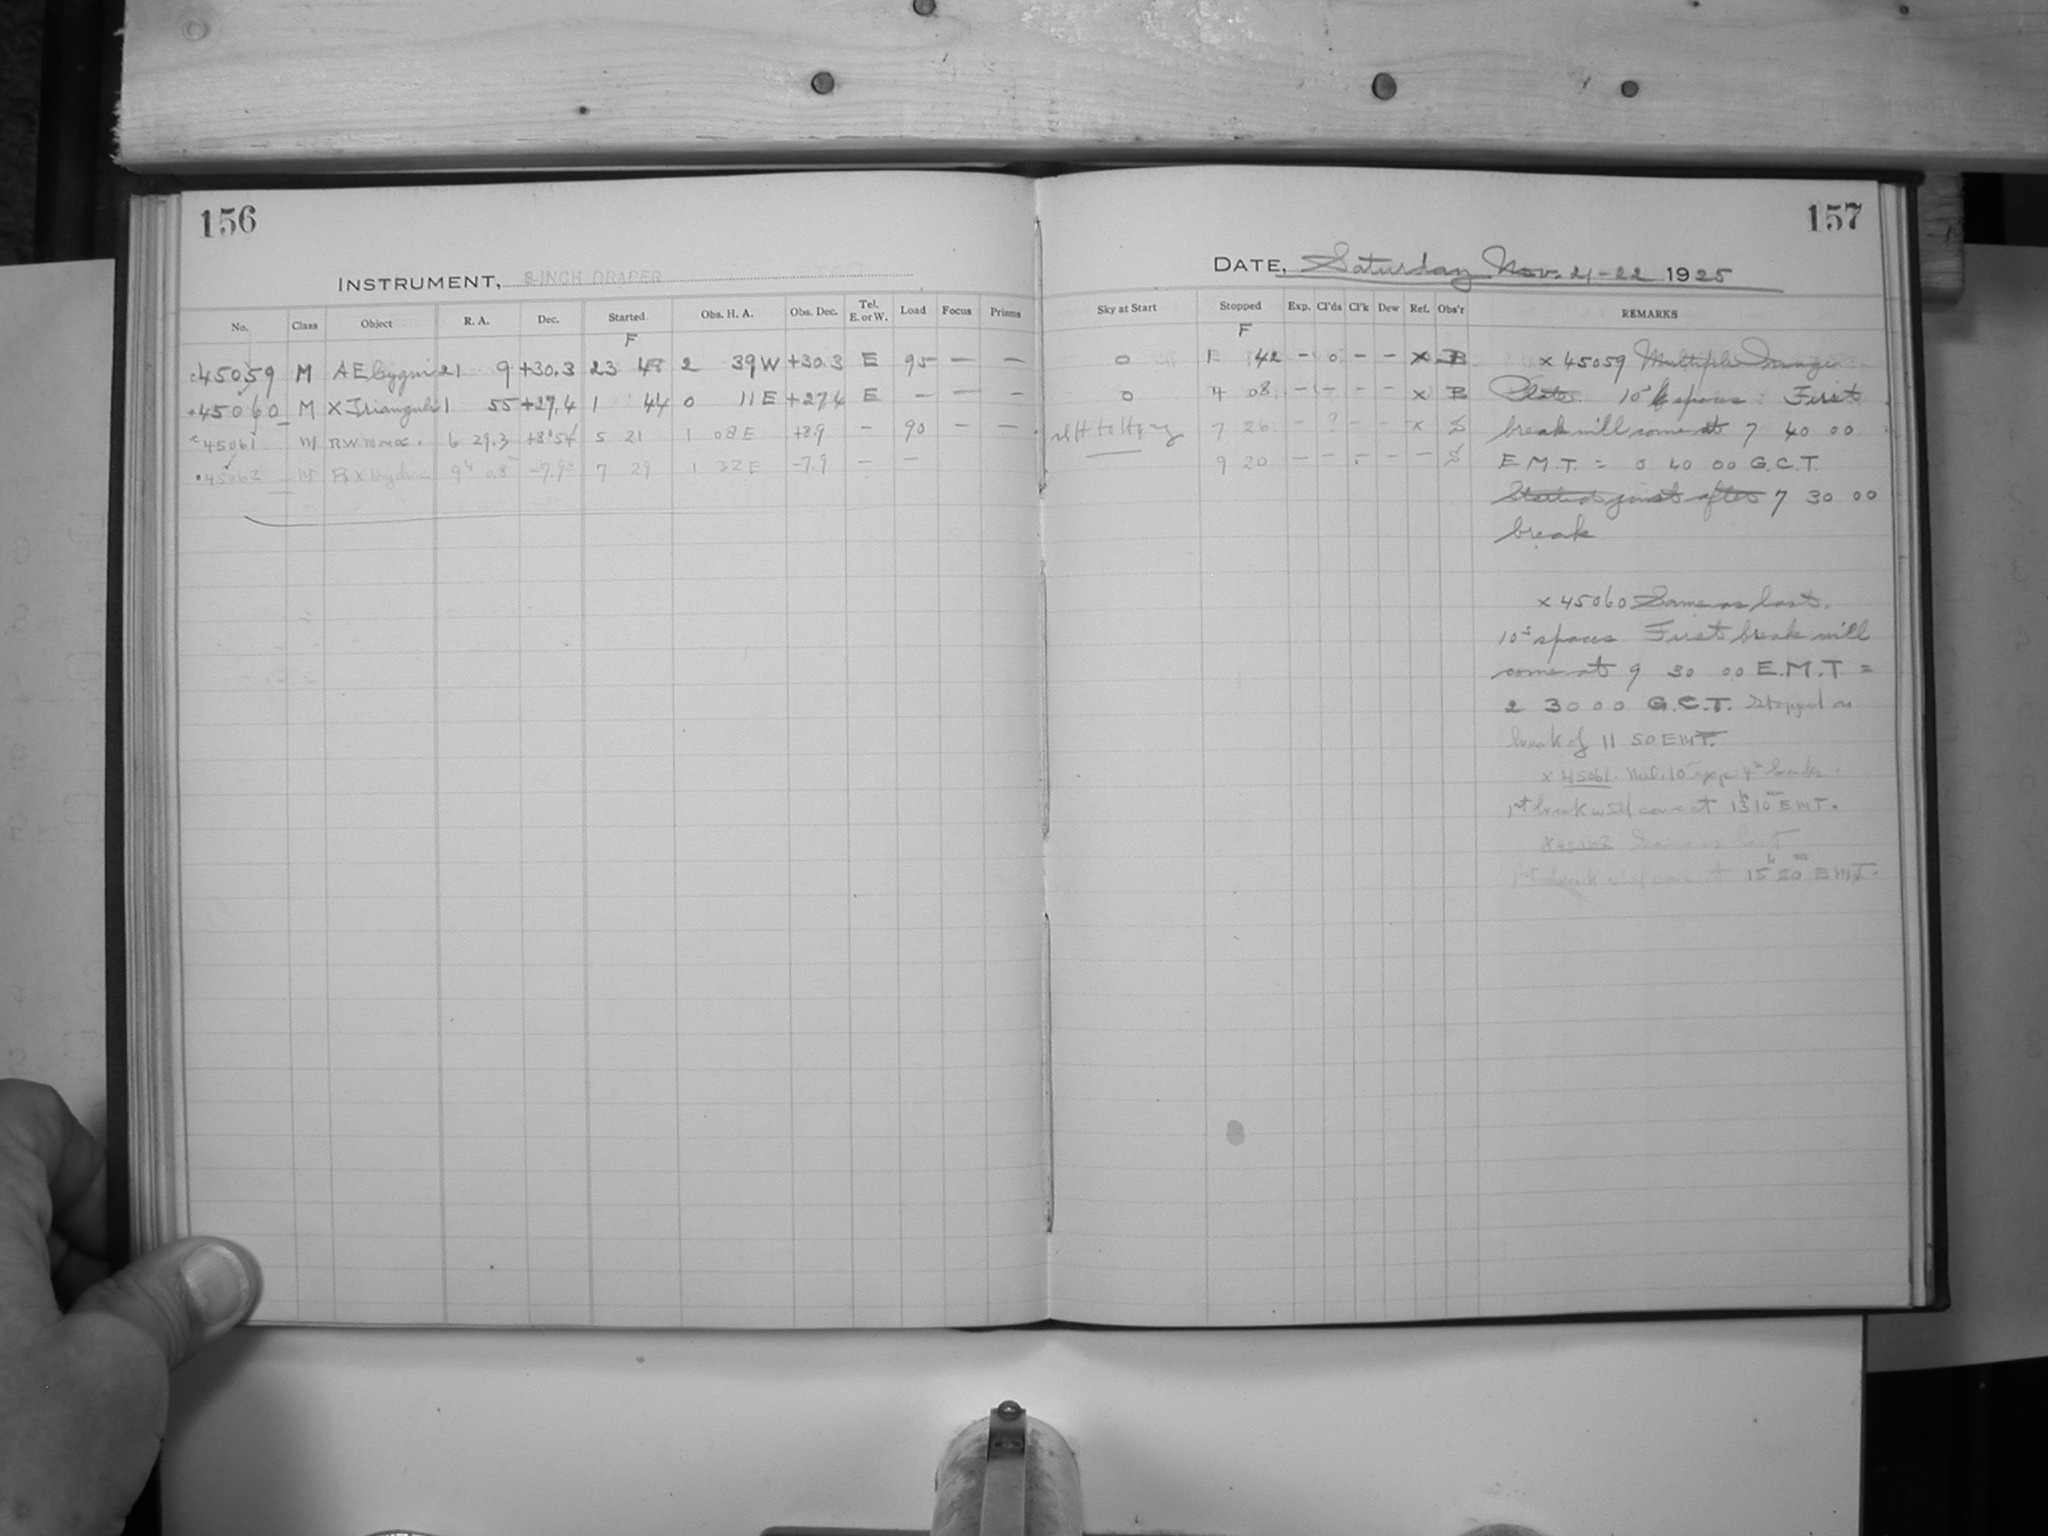 156
INSTRUMENT, 8 INCH DRAPER
No. Class Object R. A. Dec. Started Obs. H. A. Obs. Dec. Tel. E. or W. Load Focus Prisms
F
45059 M AE Cygni 21 9 +30.3 23 48 2 39 W +30.3 E 95 — —
45060 M X Trianguli 1 55 +27.4 1 44 0 11 E +27.4 E — — —
45061 M RW Monoc. 6 29.3 5 21 1 08 E +8.9 — 90 — —
45062 M RX Hydrae 9h 0.8m -7.9 7 29 1 32 E -7.9 — —
157
DATE, Saturday Nov. 21-22 1925
Sky at Start Stopped Exp. Cl'ds Cl'k Dew Ref. Obs'r REMARKS
F
0 1 42 — 0 — — x B
0 4 08 — — — — x B
7 26 — ? — — x S
9 20 — — — — — S
x 45059 Multiple Image
Plate. 10s spaces. First
break will come at 7 40 00
E.M.T. = 0 40 00 G.C.T.
Started just after 7 30 00
break
x 45060 Same as last.
10s spaces First break will
come at 9 30 00 E.M.T =
2 30 00 G.C.T. Stopped on
break of 11 50 EMT.
x 45061. Mul. 10
1st break will come at 13h 10m E.M.T.
x 45062 Same as last
1st break will come at 15h 20m EMT.